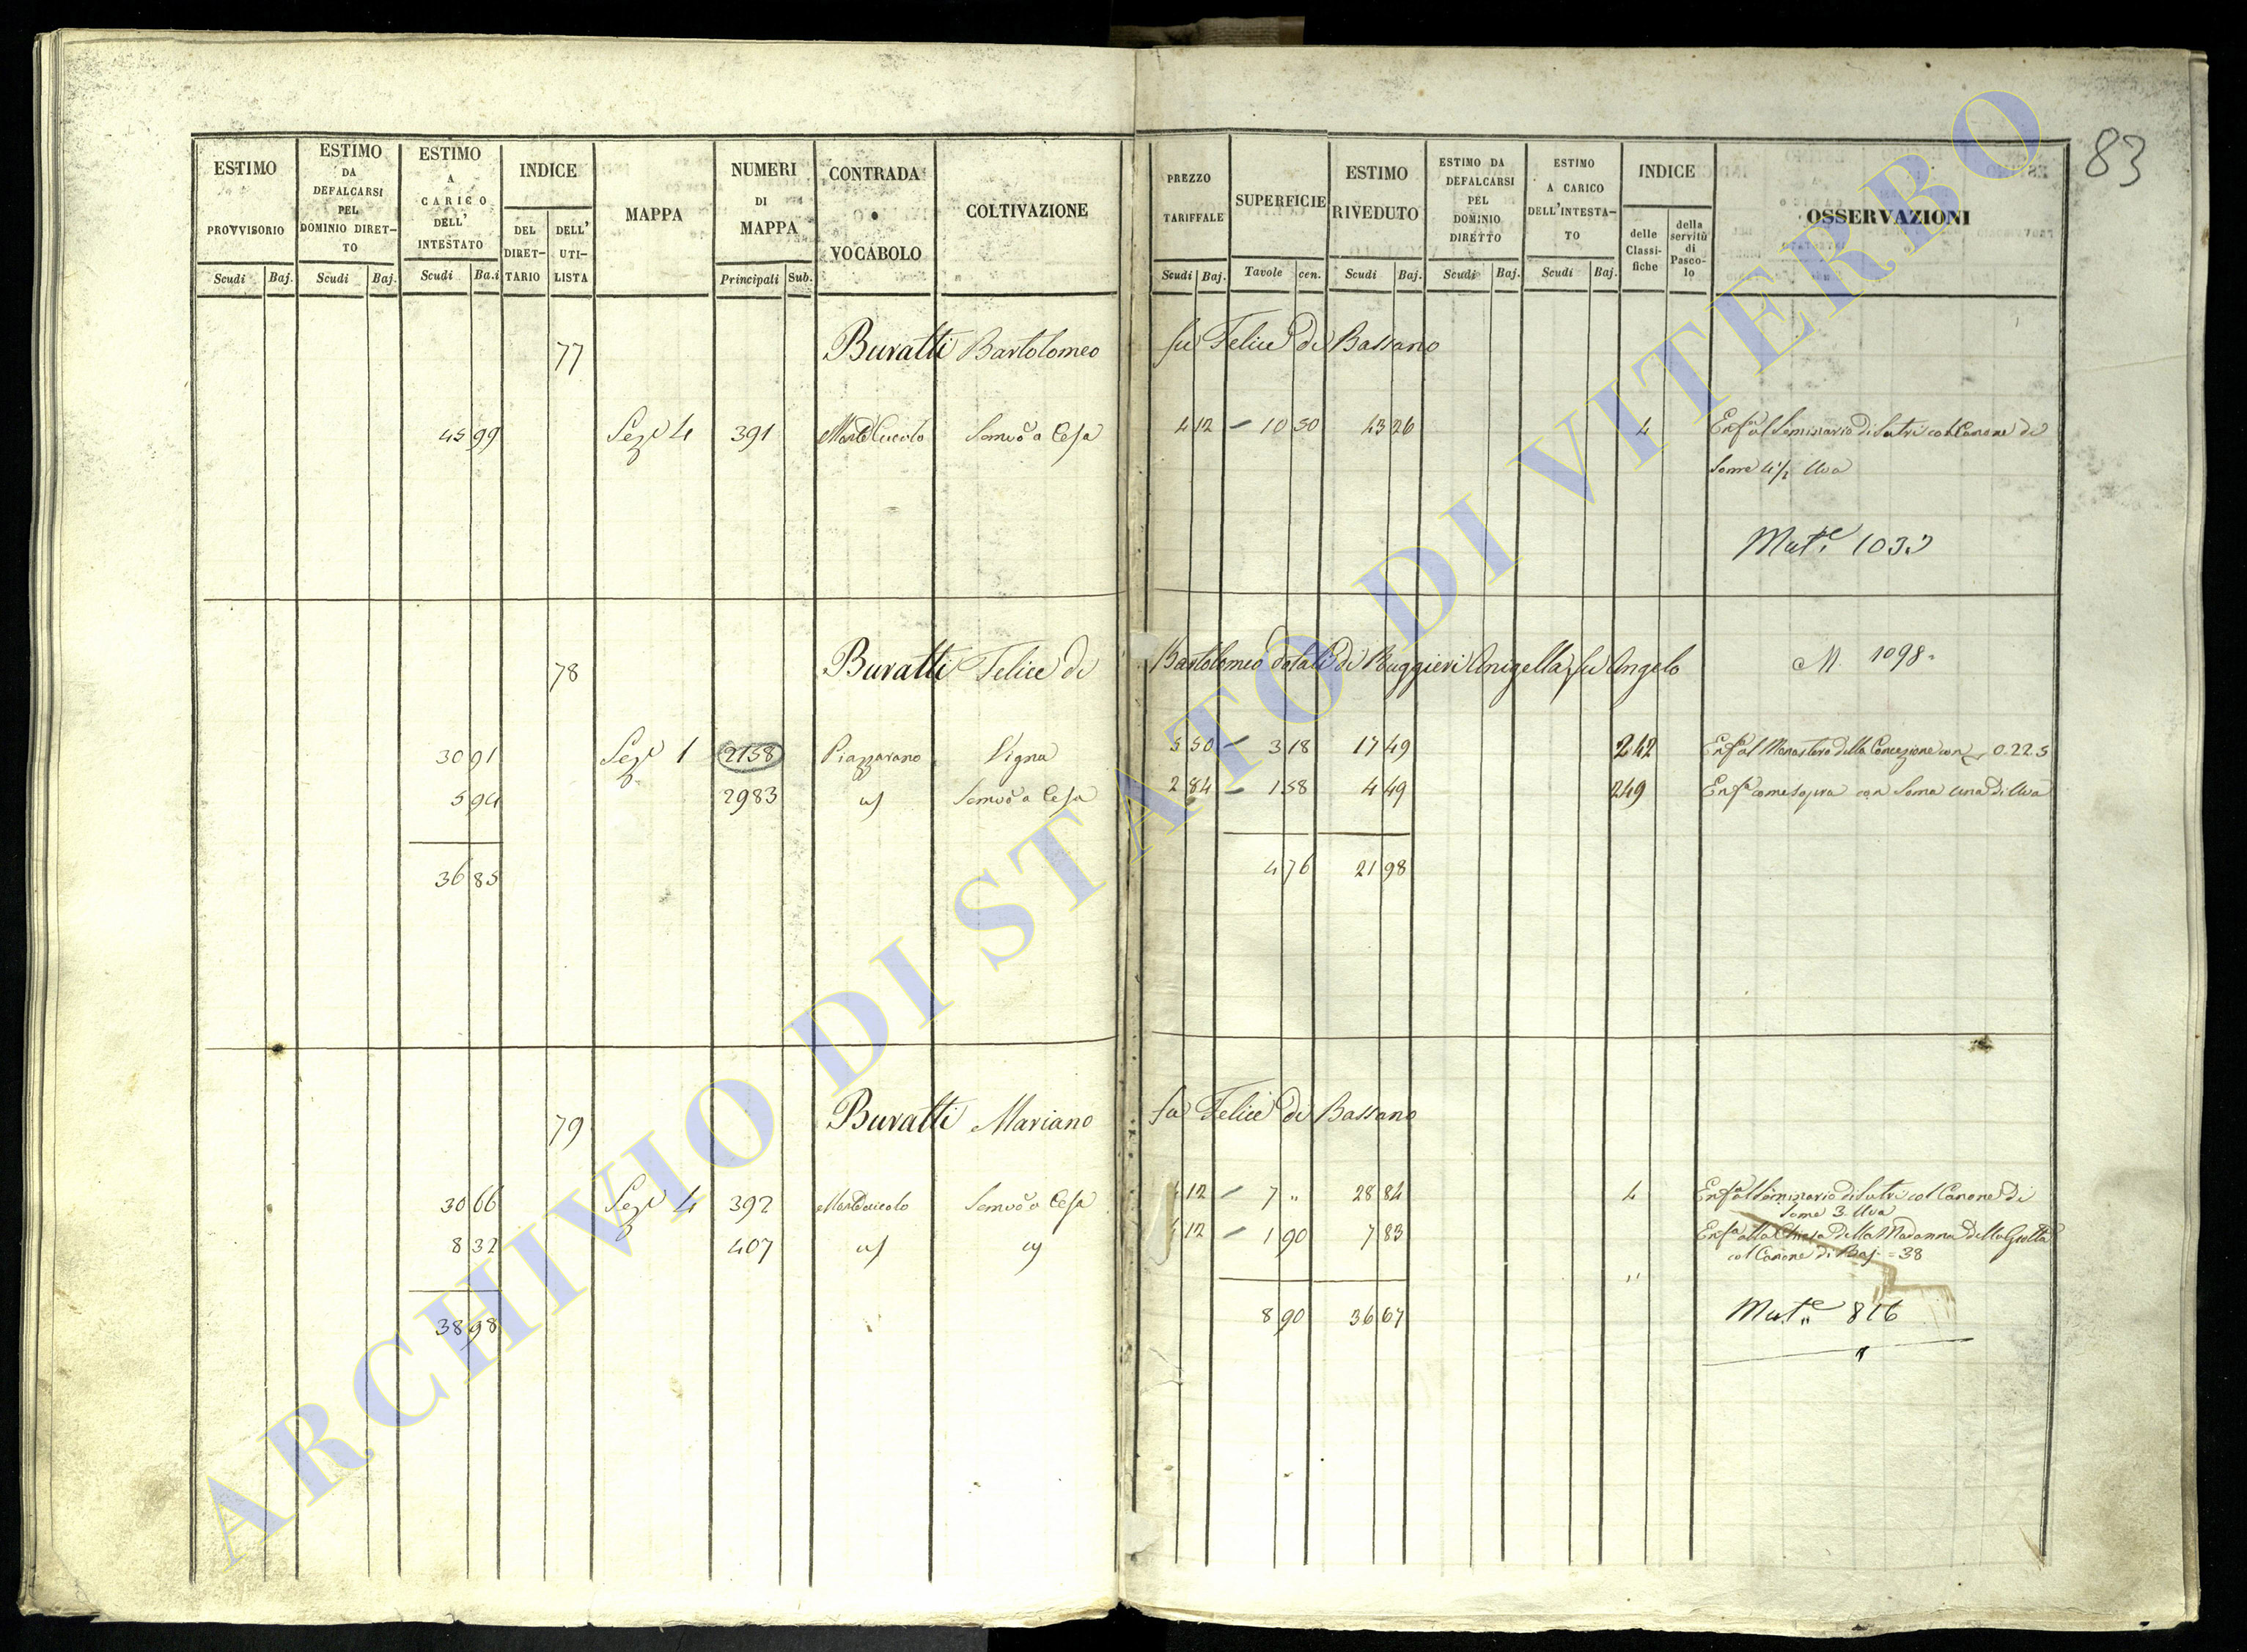 83
ESTIMO PROVVISORIO Scudi Baj.
ESTIMO DA DEFALCARSI PEL DOMINIO DIRET-TO Scudi Baj.
ESTIMO A CARICO DELL' INTESTATO Scudi Ba.i
INDICE DEL DIRET-TARIO DELL' UTI-LISTA
MAPPA
NUMERI DI MAPPA Principali Sub.
CONTRADA o VOCABOLO
COLTIVAZIONE
PREZZO TARIFFALE Scudi Baj.
SUPERFICIE Tavole cen.
ESTIMO RIVEDUTO Scudi Baj.
ESTIMO DA DEFALCARSI PEL DOMINIO DIRETTO Scudi Baj.
ESTIMO A CARICO DELL'INTESTA-TO Scudi Baj.
INDICE delle Classi-fiche della servitù di Pasco-lo
OSSERVAZIONI
77 Buratti Bartolomeo fu Felice di Bassano
45 99 Sez.e 4 391 Monte Cucolo Semvo a Cesa 4 12 – 10 50 43 26 4 Enfa al Seminario di Sutri col Canone di
Some 4 1/2 Uva
Mut.e 1033
78 Buratti Felice di Bartolomeo dotali di Ruggieri Anigella fu Angelo M. 1098
30 91 Sez.e 1 2158 Piazzarano Vigna 5 50 – 3 18 17 49 242 Enfa al Monastero della Concezione con 0.22.5
5 94 2983 uf Semvo a Cesa 2 84 – 1 58 4 49 249 Enfa come sopra con Soma una di Uva
36 85 4 76 21 98
79 Buratti Mariano fu Felice di Bassano
30 66 Sez.e 4 392 Monte Cucolo Semvo a Cesa 4 12 – 7 " 28 84 4 Enfa al Seminario di Sutri col Canone di
Some 3. Uva
8 32 407 uf uf 4 12 – 1 90 7 83 " Enfa alla Chiesa della Madonna della Grotta
col Canone di Baj = 38
38 98 8 90 36 67 Mut.e 816
ARCHIVIO DI STATO DI VITERBO